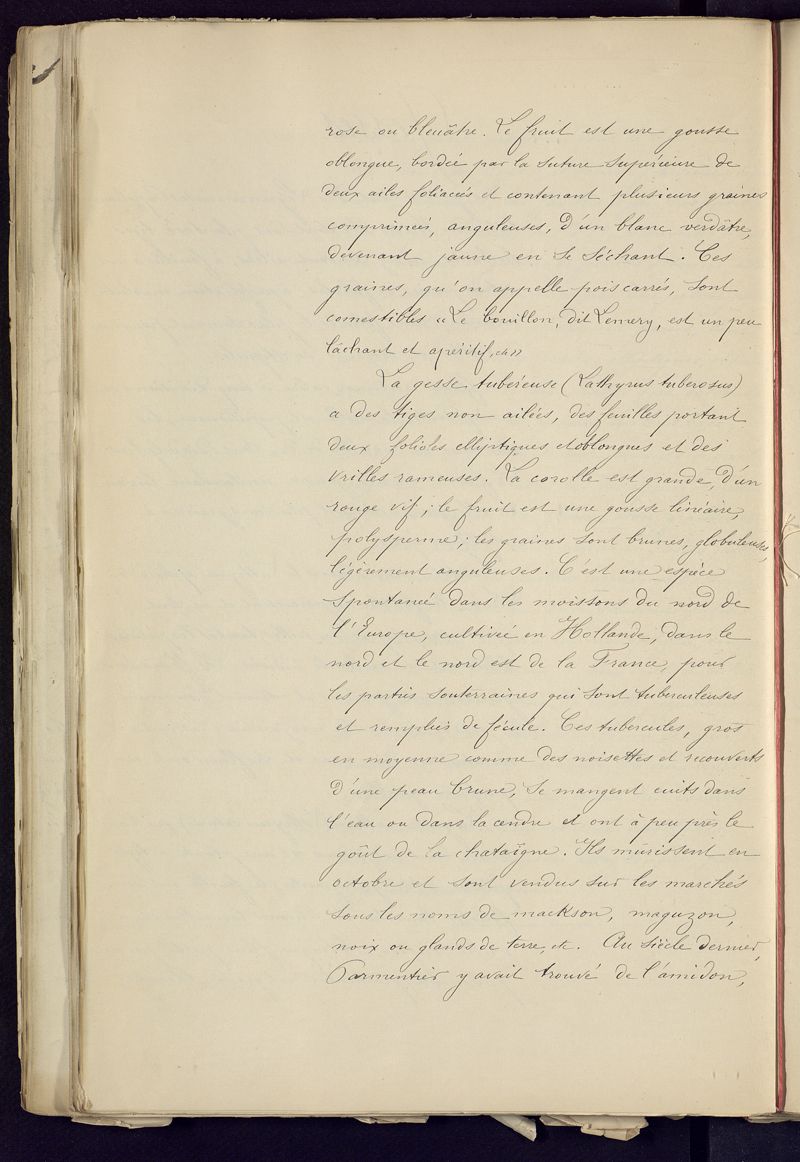 rose ou bleuâtre. Le fruit est une gousse
oblongue, bordée par la suture supérieure de
deux ailes foliacées et contenant plusieurs graines
comprimées, anguleuses, d'un blanc verdâtre,
devenant jaune en se séchant. Ces
graines, qu'on appelle pois carrés, sont
comestibles « Le bouillon, dit Lemery, est un peu
lâchant et apéritif, »
La gesse tubéreuse (Lathyrus tuberosus)
a des tiges non ailées, des feuilles portant
deux folioles elliptiques et oblongues et des
vrilles rameuses. La corolle est grande, d'un
rouge vif ; le fruit est une gousse linéaire,
polysperme ; les graines sont brunes, globuleuses,
légèrement anguleuses. C'est une espèce
spontanée dans les moissons du nord de
l'Europe, cultivée en Hollande, dans le
nord et le nord est de la France, pour
les parties souterraines qui sont tuberculeuses
et remplies de fécule. Ces tubercules, gros
en moyenne comme des noisettes et recouverts
d'une peau brune, se mangent cuits dans
l'eau ou dans la cendre et ont à peu près le
goût de la chataîgne. Ils mûrissent en
octobre et sont vendus sur les marchés
sous les noms de mackson, maguzon,
noix ou glands de terre, etc. Au siècle dernier,
Parmentier y avait trouvé de l'amidon,